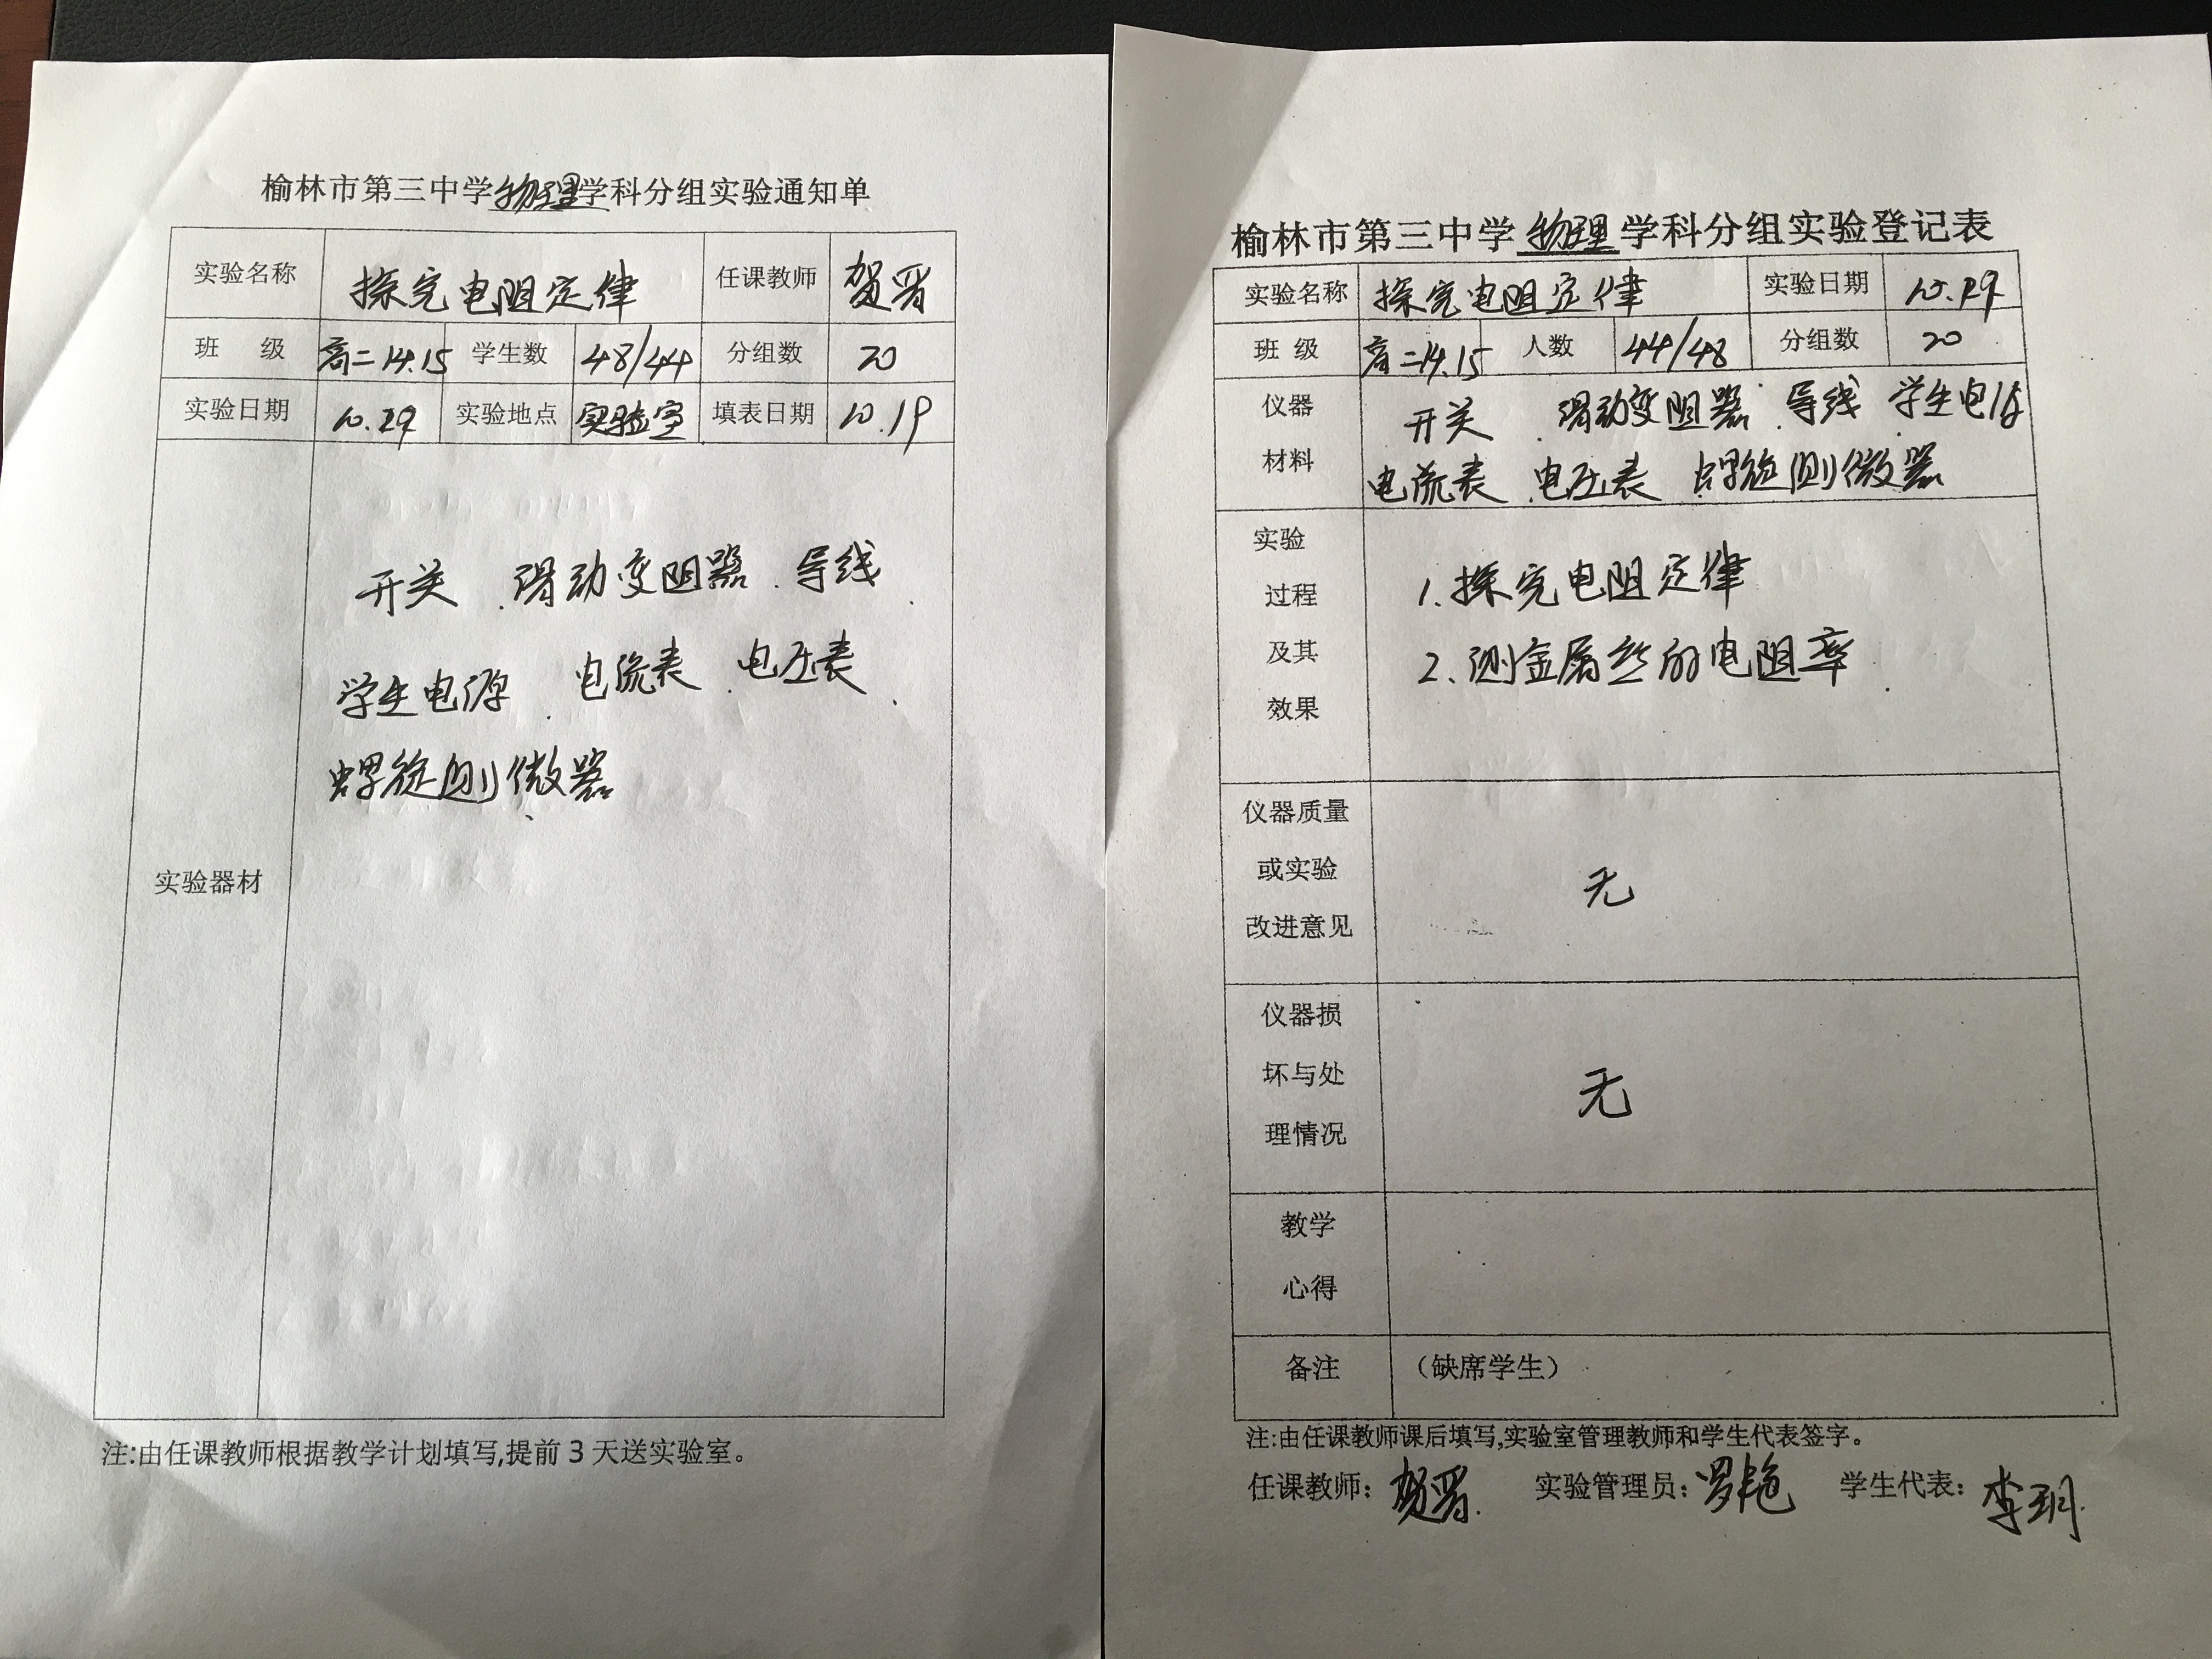 榆林市第三中学物理学科分组实验通知单
实验名称 探究电阻定律 任课教师 贺晋
班 级 高二14.15 学生数 48/44 分组数 20
实验日期 10.29 实验地点 实验室 填表日期 10.19
实验器材
开关 . 滑动变阻器 . 导线 .
学生电源 . 电流表 . 电压表 .
螺旋测微器 .
注:由任课教师根据教学计划填写,提前 3 天送实验室。
榆林市第三中学 物理 学科分组实验登记表
实验名称 探究电阻定律 实验日期 10.29
班 级 高二14.15 人数 44/48 分组数 20
仪器
材料
开关 . 滑动变阻器 . 导线 . 学生电源
电流表 . 电压表 . 螺旋测微器
实验
过程
及其
效果
1.探究电阻定律
2.测金属丝的电阻率 .
仪器质量
或实验
改进意见
无
仪器损
坏与处
理情况
无
教学
心得
备注 （缺席学生）
注:由任课教师课后填写,实验室管理教师和学生代表签字。
任课教师: 贺晋. 实验管理员: 罗艳 学生代表: 李玥.